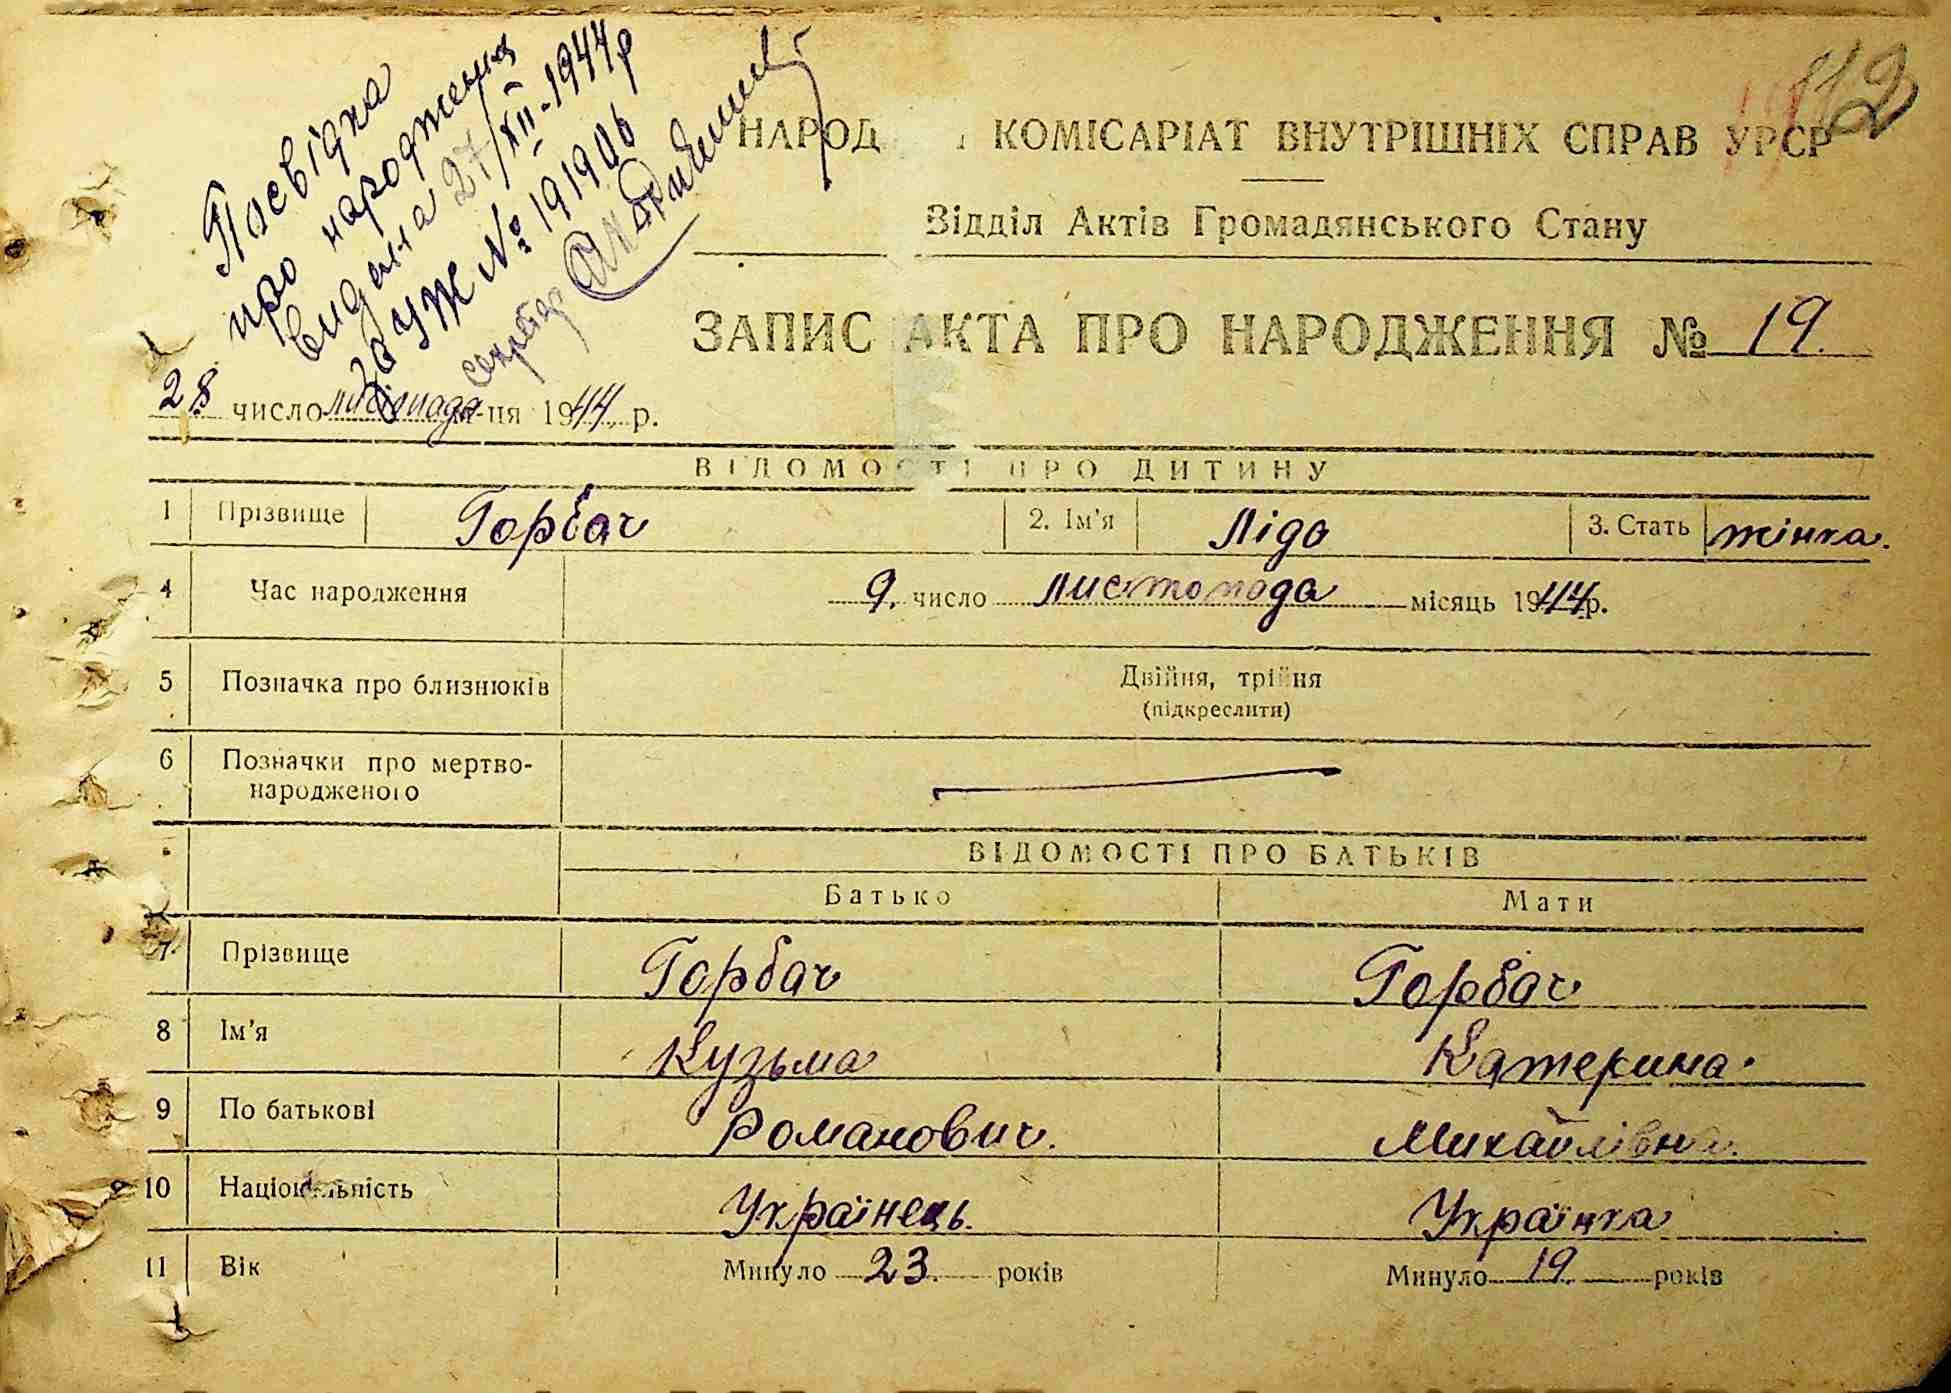 Посвідка
про народження
видана 27/XII-1944р
за УЖ № 191906
секретар
112
НАРОД КОМІСАРІАТ ВНУТРІШНІХ СПРАВ УРСР
Відділ Актів Громадянського Стану
ЗАПИС АКТА ПРО НАРОДЖЕННЯ № 19.
28 число листопада м-ця 1944 р.
ВІДОМОСТІ ПРО ДИТИНУ
1 Прізвище Горбач 2. Ім'я Ліда 3. Стать жінка.
4 Час народження 9. число листопада місяць 1944р.
5 Позначка про близнюків Двійня, трійня
(підкреслити)
6 Позначки про мертво-
народженого
ВІДОМОСТІ ПРО БАТЬКІВ
Батько Мати
7 Прізвище Горбач Горбач
8 Ім'я Кузьма Катерина.
9 По батькові Романович. Михайлівна.
10 Національність Українець. Українка
11 Вік Минуло 23. років Минуло 19. років